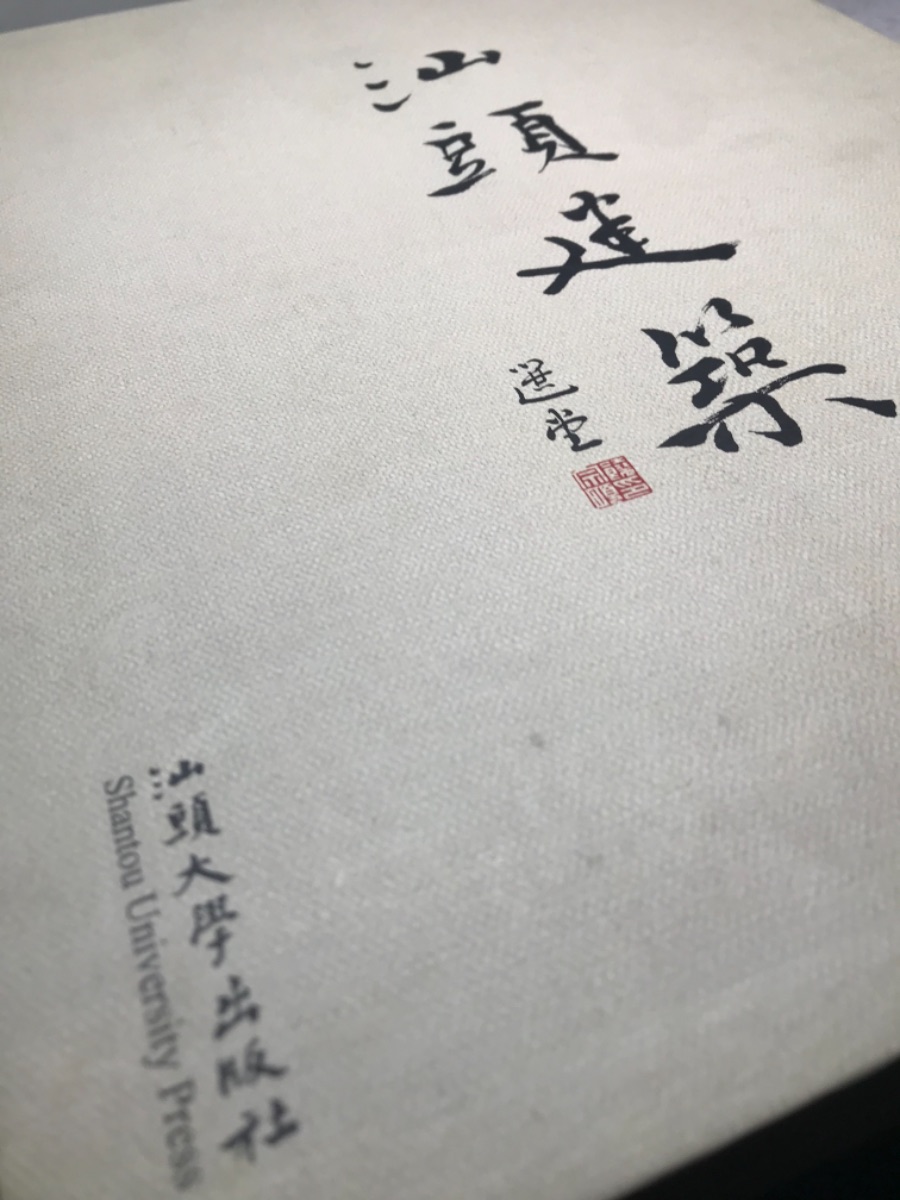 汕頭建築
選堂
汕頭大學出版社
Shantou University Press